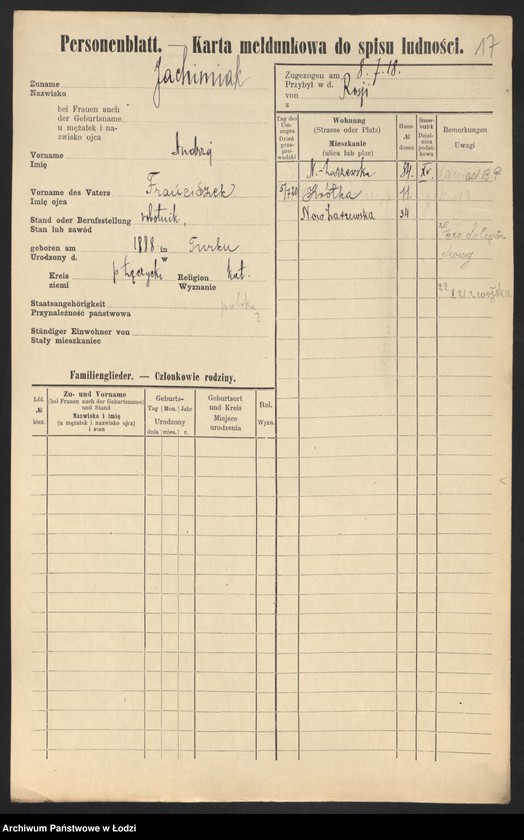 Personenblatt. — Karta meldunkowa do spisu ludności.
17
Zuname
Nazwisko
Jachimiak
bei Frauen auch
der Geburtsname
u mężatek i na-
zwisko ojca
Vorname
Imię
Andrzej
Vorname des Vaters
Imię ojca
Franciszek
Stand oder Berufsstellung
Stan lub zawód
robotnik
geboren am 1888 in Turku
Urodzony d. w
Kreis
ziemi
p Łęczycki
Religion
Wyznanie
kat.
Staatsangehörigkeit
Przynależność państwowa
polska
?
Ständiger Einwohner von
Stały mieszkaniec
Zugezogen am
Przybył w d.
8.7.18.
von
z
Rosji
Tag des
Um-
zuges
Dzień
prze-
prowadzki
Wohnung
(Strasse oder Platz)
Mieszkanie
(ulica lub plac)
Haus-
№
domu
Steuer-
bezirk
Dziel-
nica
podat-
kowa
Bemerkungen
Uwagi
N.-Zarzewska 89. XV
5/7 20 Krótka 11.
Nowo Zarzewska 34
Familienglieder. — Członkowie rodziny.
Lfd.
№
bież.
Zu- und Vorname
(bei Frauen auch der Geburtsname)
und Stand
Nazwisko i imię
(u mężatek i nazwisko ojca)
i stan
Geburts-
Tag | Mon. | Jahr
Urodzony
dnia | mies. | r.
Geburtsort
und Kreis
Miejsce
urodzenia
Rel.
Wyzn.
Archiwum Państwowe w Łodzi